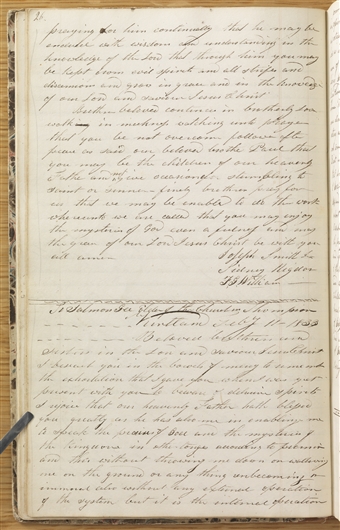 26
praying for him continually that he may be
endued with wisdom and understanding in the
knowledge of the Lord that through him you may
be kept from evil spirits and all strifes and
dissensions and grow in grace and in the knowledge
of our Lord and saviour Jesus Christ
brethren beloved continue in brotherly love
walk in meekness watching unto prayer
that you be not overcome follow after
peace as said our beloved brother Paul that
you may be the children of our heavenly
Father and not give occasion for stumbling to
saint or sinner finely brethren pray for
us that we may be enabled to do the work
whereunto we are called that you may enjoy
the mysteries of God even a fulness and may
the grace of our Lord Jesus Christ be with you
all amen
Joseph Smith Jr
Sidney Rigdon
F G Williams
to the Church in Thompson
Kirtland Feby 11 1833
Beloved brethren and
Sisters in the Lord and Saviour Jesus Christ
I beseech you in the bowels of mercy to remember
the exhortation that I gave you whilst I was yet
present with you to beware of delusive spirits
I rejoice that our heavenly Father hath blessed
you greatly as he has also me in enabling me
to speak the praises of God and the mysteries of
the Kingdom in other tongues according to promise
and this without throwing me down or wallowing
me on the ground or any thing unbecoming or
immoral also without any external operation
of the system but it is the internal operation